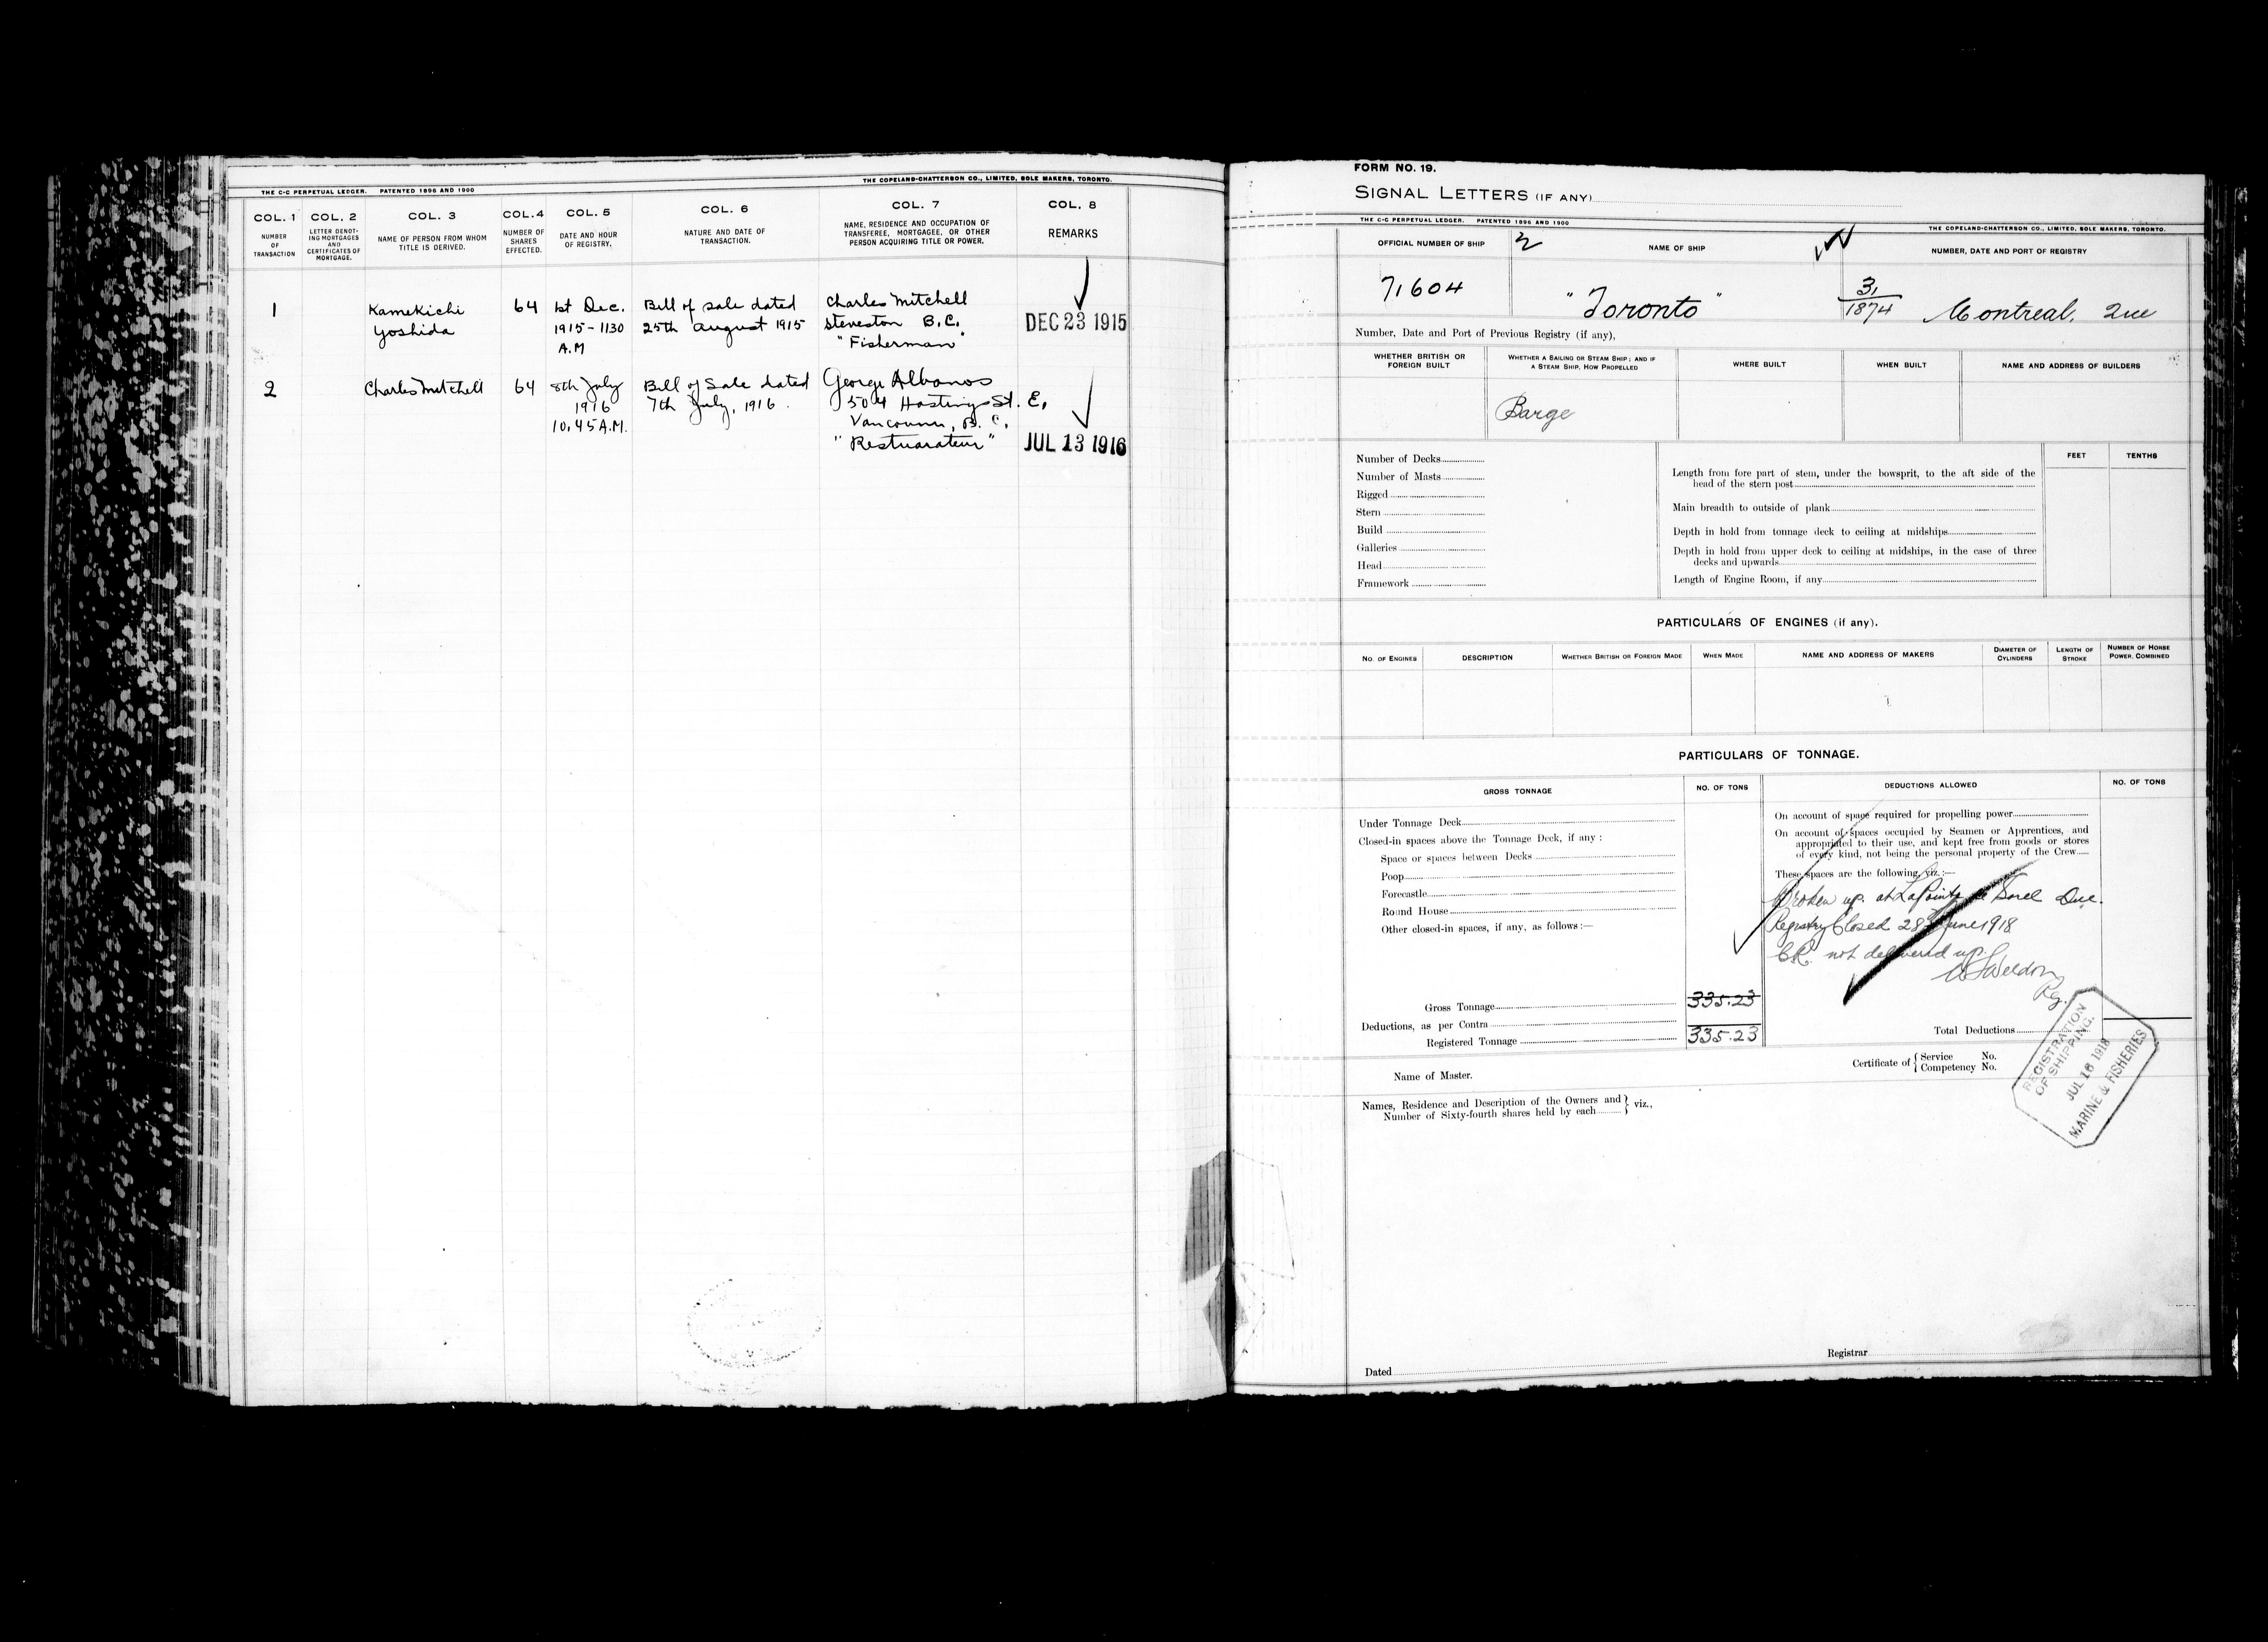 THE C-C PERPETUAL LEDGER. PATENTED 1896 AND 1900
THE COPELAND-CHATTERSON CO., LIMITED, SOLE MAKERS, TORONTO.
COL. 1 COL. 2 COL. 3 COL. 4 COL. 5 COL. 6 COL. 7 COL. 8
NUMBER OF TRANSACTION
LETTER DENOT-ING MORTGAGES AND CERTIFICATES OF MORTGAGE.
NAME OF PERSON FROM WHOM TITLE IS DERIVED.
NUMBER OF SHARES EFFECTED.
DATE AND HOUR OF REGISTRY.
NATURE AND DATE OF TRANSACTION.
NAME, RESIDENCE AND OCCUPATION OF TRANSFEREE, MORTGAGEE, OR OTHER PERSON ACQUIRING TITLE OR POWER.
REMARKS
1 Kamekichi 64 1st Dec. Bill of sale dated Charles Mitchell
Yoshida 1915-1130 25th August 1915 Steveston B.C. DEC 23 1915
A.M "Fisherman"
2 Charles Mitchell 64 8th July Bill of Sale dated George Albanos
1916 7th July, 1916. 504 Hastings St. E,
10.45 A.M. Vancouver, B. C,
"Restuarateur" JUL 13 1916
FORM NO. 19.
SIGNAL LETTERS (IF ANY)
THE C-C PERPETUAL LEDGER. PATENTED 1896 AND 1900
THE COPELAND-CHATTERSON CO., LIMITED, SOLE MAKERS, TORONTO.
OFFICIAL NUMBER OF SHIP NAME OF SHIP NUMBER, DATE AND PORT OF REGISTRY
71604 "Toronto" 31/1874 Montreal. Que
Number, Date and Port of Previous Registry (if any),
WHETHER BRITISH OR FOREIGN BUILT
WHETHER A SAILING OR STEAM SHIP; AND IF A STEAM SHIP, HOW PROPELLED
WHERE BUILT
WHEN BUILT
NAME AND ADDRESS OF BUILDERS
Barge
Number of Decks
Number of Masts
Rigged
Stern
Build
Galleries
Head
Framework
FEET TENTHS
Length from fore part of stem, under the bowsprit, to the aft side of the
head of the stern post
Main breadth to outside of plank
Depth in hold from tonnage deck to ceiling at midships
Depth in hold from upper deck to ceiling at midships, in the case of three
decks and upwards
Length of Engine Room, if any
PARTICULARS OF ENGINES (if any).
NO. OF ENGINES
DESCRIPTION
WHETHER BRITISH OR FOREIGN MADE
WHEN MADE
NAME AND ADDRESS OF MAKERS
DIAMETER OF CYLINDERS
LENGTH OF STROKE
NUMBER OF HORSE POWER, COMBINED
PARTICULARS OF TONNAGE.
GROSS TONNAGE NO. OF TONS DEDUCTIONS ALLOWED NO. OF TONS
Under Tonnage Deck
Closed-in spaces above the Tonnage Deck, if any :
Space or spaces between Decks
Poop
Forecastle
Round House
Other closed-in spaces, if any, as follows :—
Gross Tonnage 335.23
Deductions, as per Contra
Registered Tonnage 335.23
On account of space required for propelling power
On account of spaces occupied by Seamen or Apprentices, and
appropriated to their use, and kept free from goods or stores
of every kind, not being the personal property of the Crew
These spaces are the following, viz. :—
Broken up. at LaPointe de Sorel Que.
Registry Closed 28 June 1918
C.R. not delivered up.
Reg.
Total Deductions
REGISTRATION
OF SHIPPING.
JUL 16 1918
MARINE & FISHERIES
Certificate of { Service No.
Competency No.
Name of Master.
Names, Residence and Description of the Owners and } viz.,
Number of Sixty-fourth shares held by each
Registrar
Dated